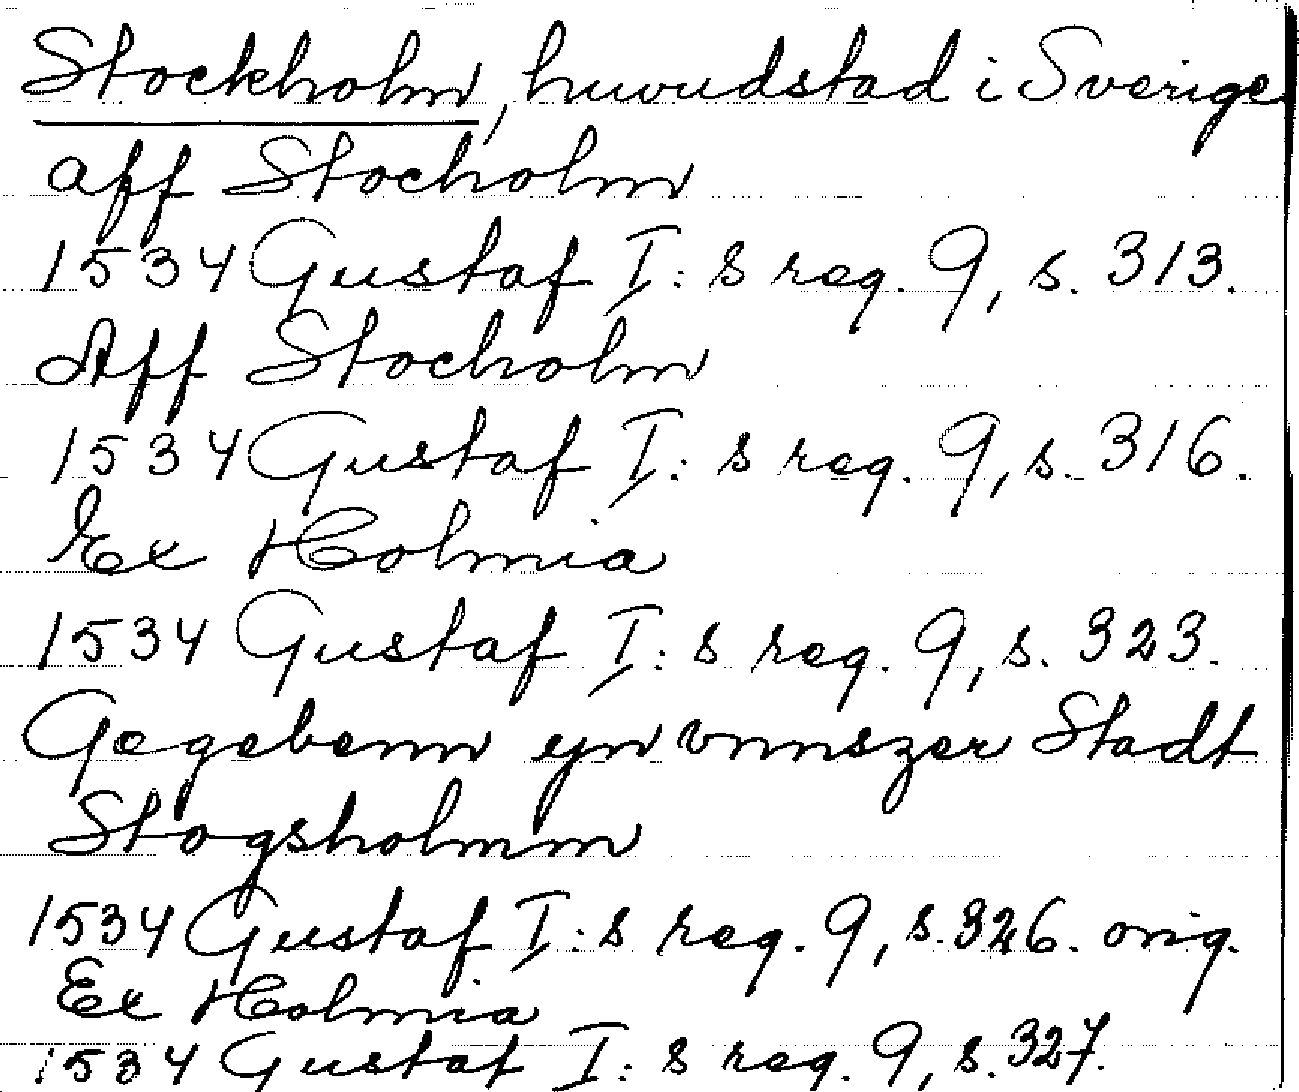 Stockholm, huvudstad i Sverige
aff Stocholm
1534 Gustaf I:s reg. 9, s. 313.
Aff Stocholm
1534 Gustaf I:s reg. 9, s. 316.
Ex Holmia
1534 Gustaf I:s reg. 9, s. 323.
Gegebenn eyn vnnszer Stadt
Stogsholmm
1534 Gustaf I:s reg. 9, s. 326. orig.
Ex Holmia
1534 Gustaf I:s reg. 9, s. 327.